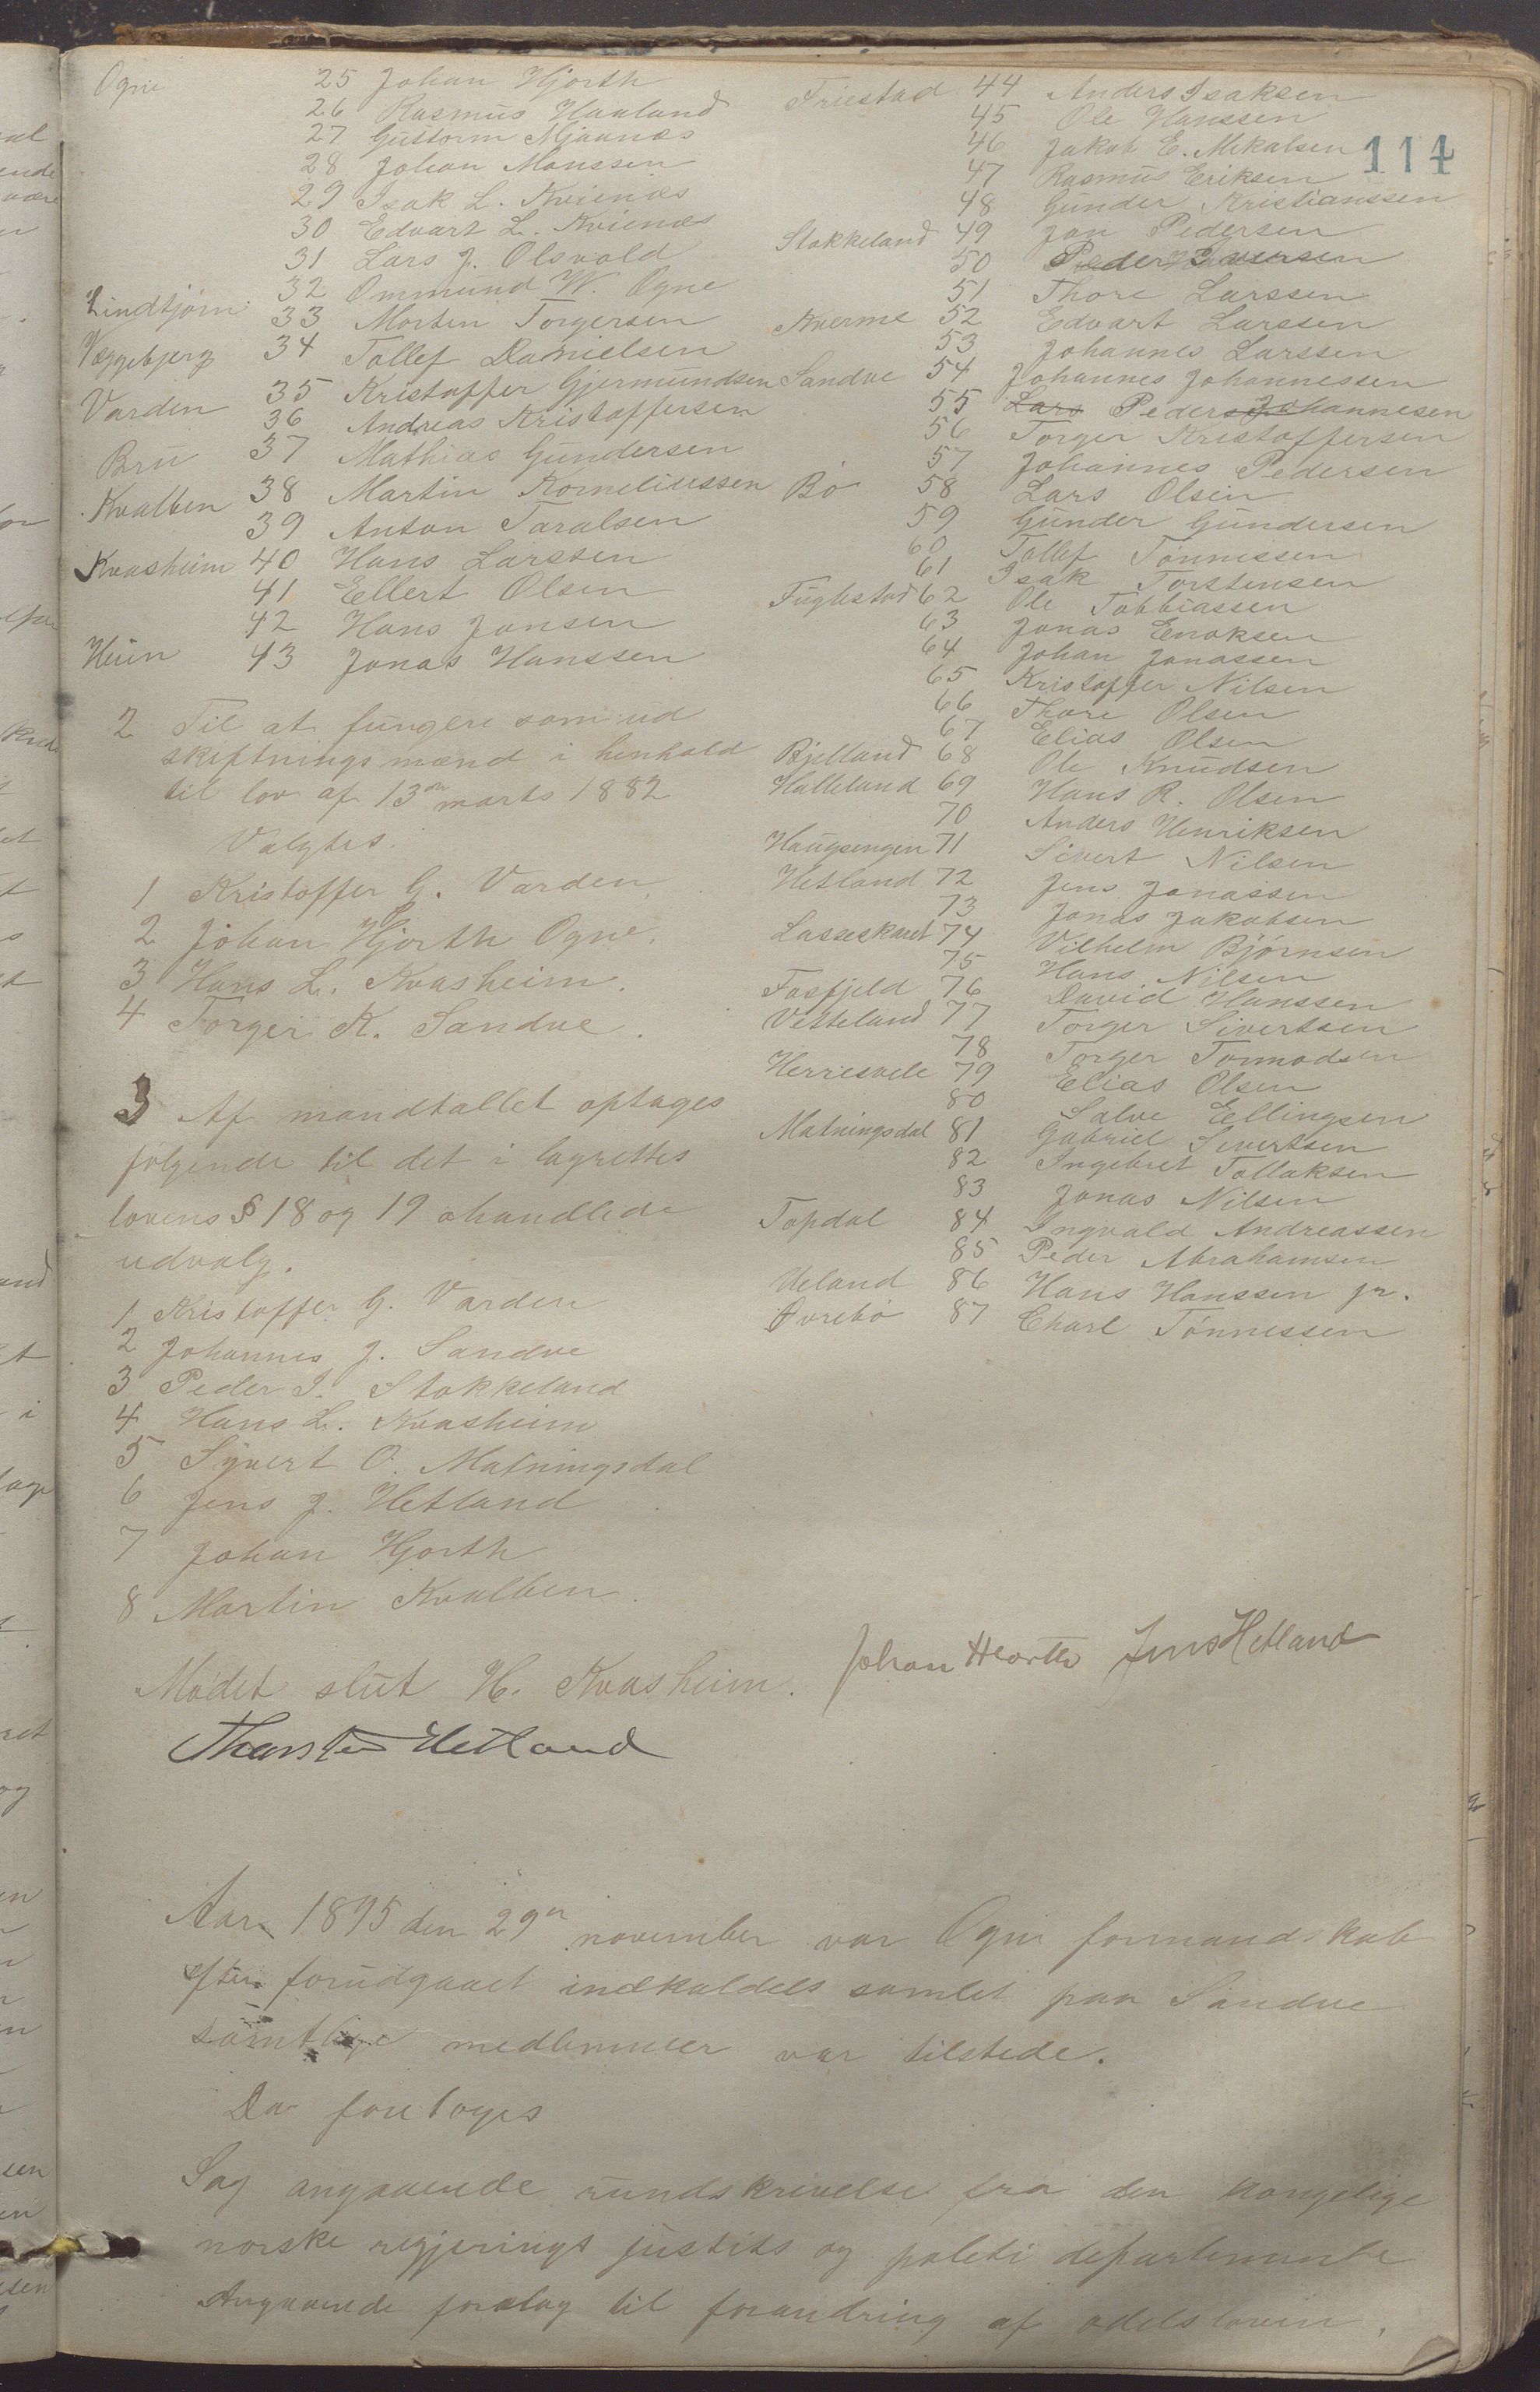 114
Ogne 25 Johan Hjorth
26 Rasmus Haaland
27 Guttorm Mjaanæs
28 Johan Monssen
29 Isak L. Kvienæs
30 Edvart L. Kvienæs
31 Lars J. Olsvold
32 Ommund W. Ogne
Lindtjørn 33 Morten Torgersen
Væggebjerg 34 Tollef Danielsen
Varden 35 Kristoffer Gjermundsen
36 Andreas Kristoffersen
Bru 37 Mathias Gundersen
Kvalben 38 Martin Korneliussen
39 Anton Taralsen
Kvasheim 40 Hans Larssen
41 Ellert Olsen
42 Hans Jansen
Heim 43 Jonas Hanssen
2 Til at fungere som ud
skiftnings mænd i henhold
til lov af 13de marts 1882
Valgtes.
1 Kristoffer G. Varden
2 Johan Hjorth Ogne.
3 Hans L. Kvasheim.
4 Torger K. Sandve.
3 Af mandtallet optages
følgende til det i lagrettes
lovens § 18 og 19 ohandlede
udvalg.
1 Kristoffer G. Varden
2 Johannes J. Sandve
3 Peder I. Stokkeland
4 Hans L. Kvasheim
5 Syvert O. Matningsdal
6 Jens J. Hetland
7 Johan Hjorth
8 Martin Kvalben.
Friestad 44 Anders Isaksen
45 Ole Hanssen
46 Jakob E. Mikalsen
47 Rasmus Eriksen
48 Gunder Kristianssen
Stokkeland 49 Jon Pedersen
50 Peder Iversen
51 Thore Larssen
Kverme 52 Edvart Larssen
53 Johannes Larssen
Sandve 54 Johannes Johannessen
55 Lars Peder Johannesen
56 Torger Kristoffersen
57 Johannes Pedersen
Bø 58 Lars Olsen
59 Gunder Gundersen
60 Tollef Tønnessen
61 Isak Torstensen
Fuglestad 62 Ole Tobbiassen
63 Jonas Enoksen
64 Johan Jonassen
65 Kristoffer Nilsen
66 Thore Olsen
67 Elias Olsen
Bjelland 68 Ole Knudsen
Halleland 69 Hans R. Olsen
70 Anders Henriksen
Haugsengen 71 Sivert Nilsen
Hetland 72 Jens Jonassen
73 Jonas Jakobsen
Lasseskaret 74 Vilhelm Bjørnsen
75 Hans Nilsen
Fosfjeld 76 David Hanssen
Vetteland 77 Torger Sivertsen
78 Torger Tormodsen
Herresvele 79 Elias Olsen
80 Salve Ellingsen
Matningsdal 81 Gabriel Sivertsen
82 Ingebret Tollaksen
83 Jonas Nilsen
Topdal 84 Ingvald Andreassen
85 Peder Abrahamsen
Ueland 86 Hans Hanssen jr.
Øvrebø 87 Charl Tønnessen
Mødet slut H. Kvasheim. Johan Hiorth Jens Hetland
Thorsten Hetland
Aar 1895 den 29n november var Ogne formandskab
efter forudgaaet indkaldels samlet paa Sandve
samtlige medlemmer var tilstede.
Da foretoges
Sag angaaende rundskrivelse fra den kongelige
norske regjerings justits og politi departemente
Angaaende forslag til forandring af odelsloven.